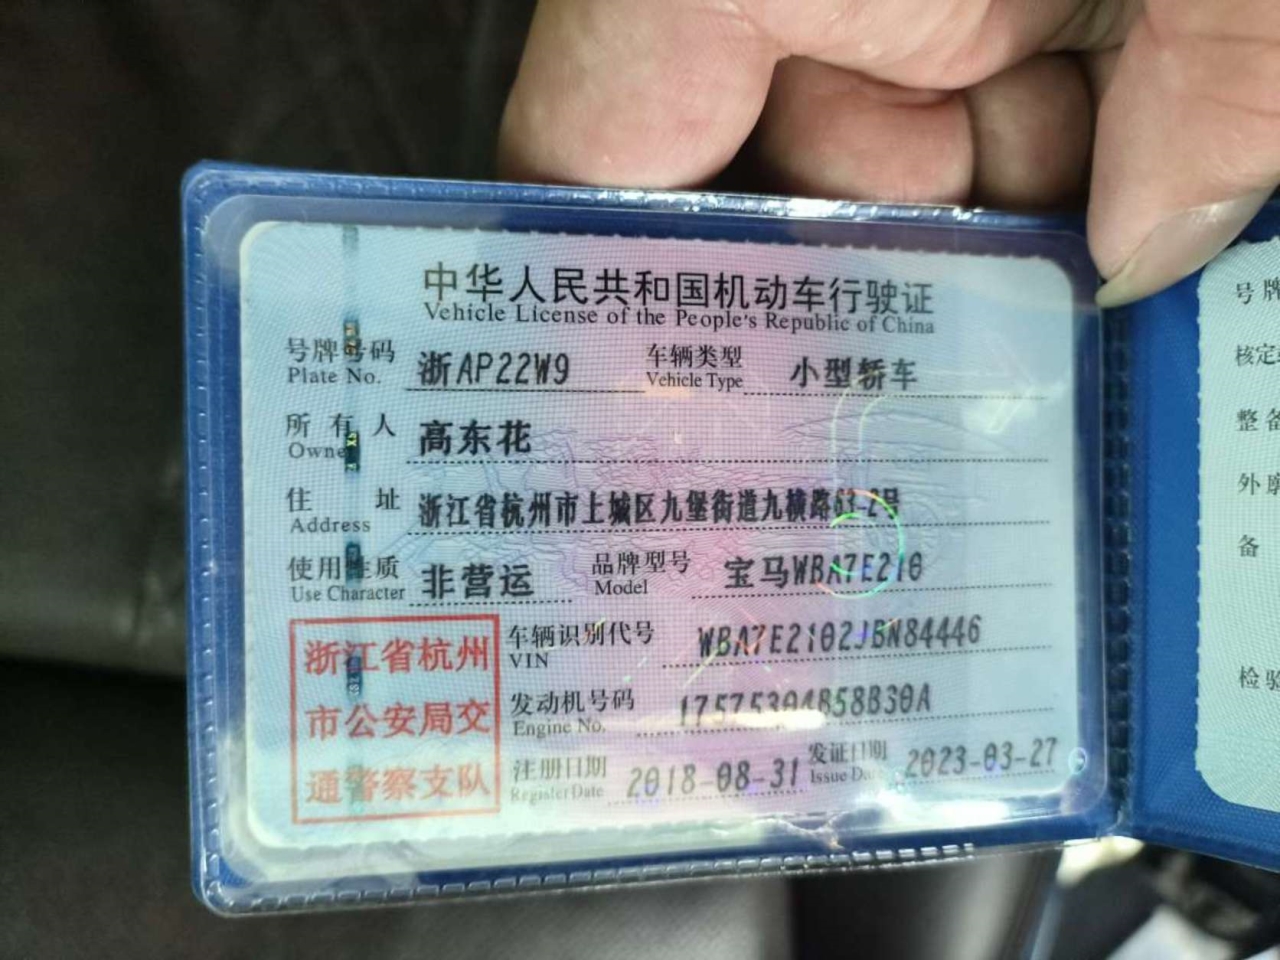 中华人民共和国机动车行驶证
Vehicle License of the People's Republic of China
号牌号码 浙AP22W9 车辆类型 小型轿车
Plate No. Vehicle Type
所有人 高东花
Owner
住址 浙江省杭州市上城区九堡街道九横路63-2号
Address
使用性质 非营运 品牌型号 宝马WBA7E210
Use Character Model
浙江省杭州
市公安局交
通警察支队
车辆识别代号 WBA7E2102JBN84446
VIN
发动机号码
Engine No.
注册日期 2018-08-31 发证日期 2023-03-27
Register Date Issue Date
号牌
核定
整备
外廓
备
检验